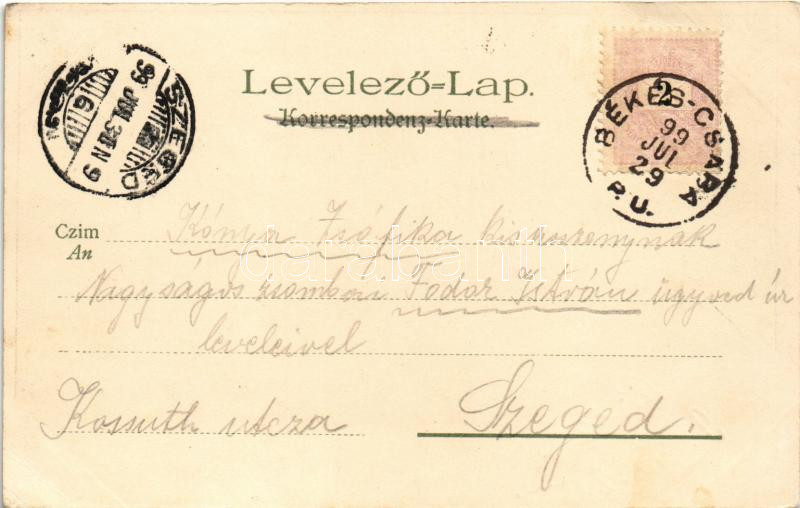 Levelező=Lap.
Korrespondenz-Karte.
SZEGED
99 JUL 30 N 9
BÉKÉS-CSABA
99
JUL
29
P. U.
2
Czim Kónya Zsófika kisasszonynak
An
Nagyságos zsombori Fodor István ügyvéd úr
leveleivel
Kossuth utcza Szeged.
darabanth